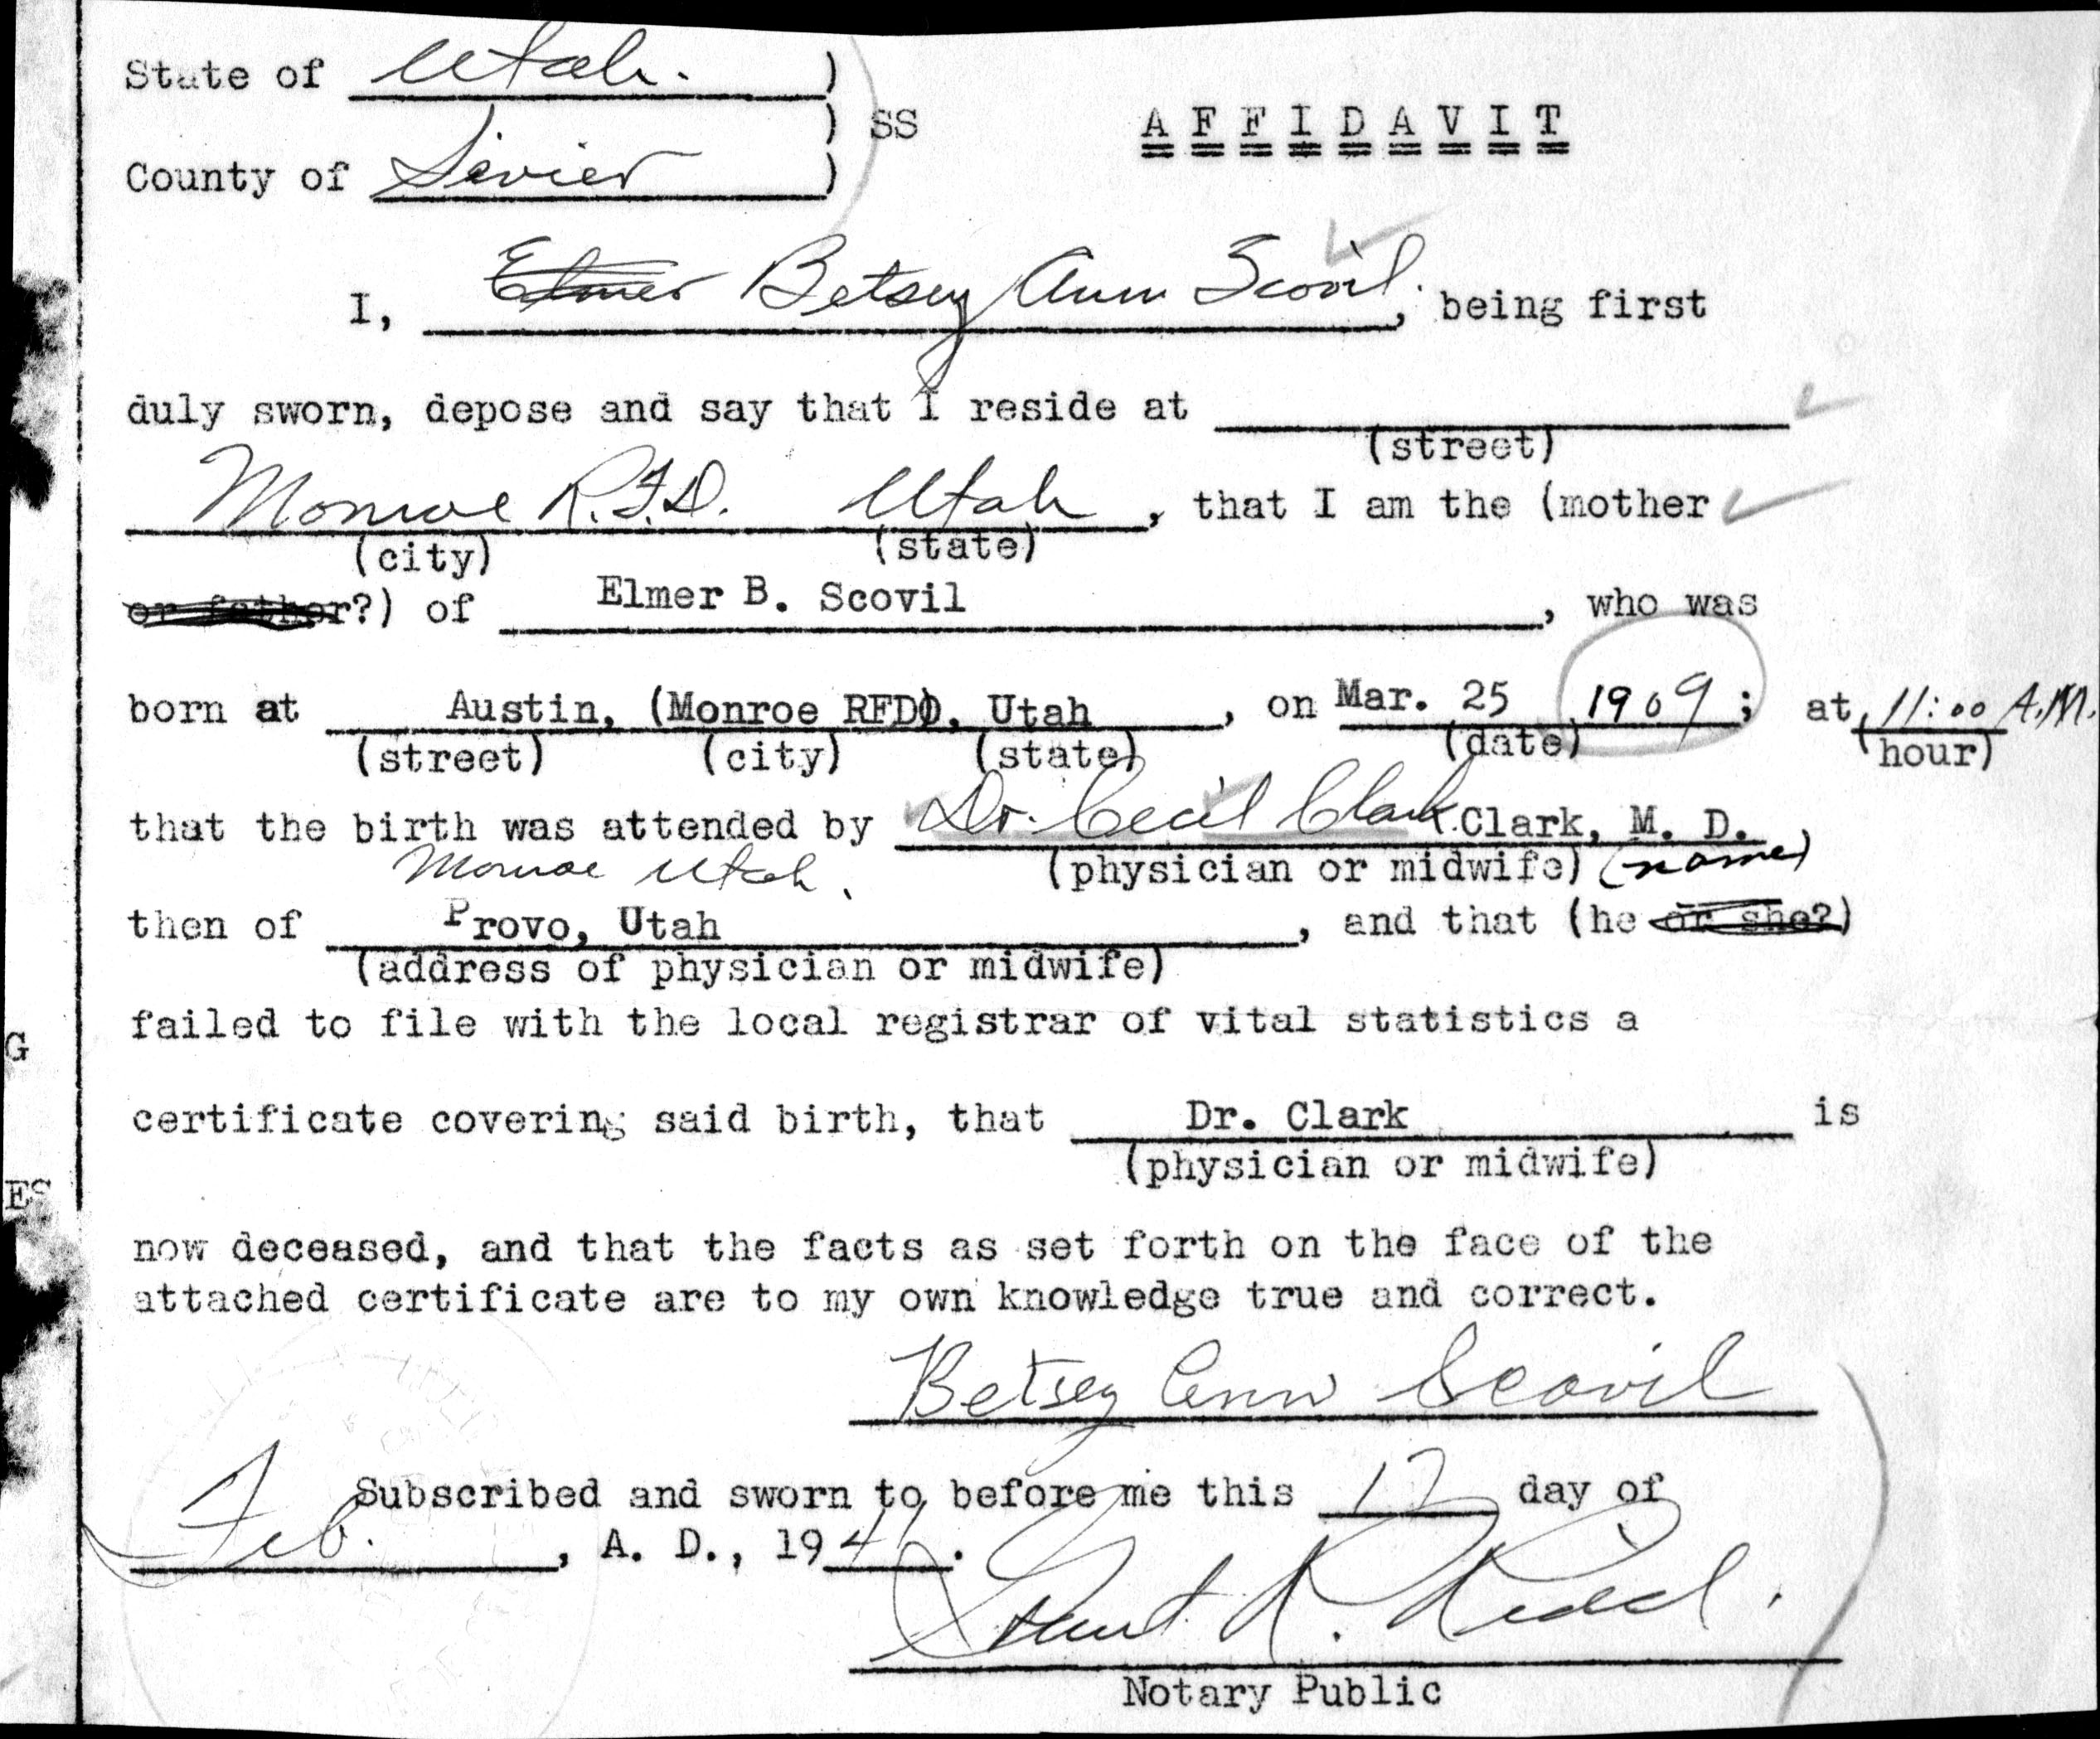 State of Utah. )
) SS
A F F I D A V I T
County of Sevier )
I, Elmer Betsey Ann Scovil., being first
duly sworn, depose and say that I reside at
(street)
Monroe R.F.D. Utah, that I am the (mother
(city) (state)
or father?) of Elmer B. Scovil, who was
born at Austin, (Monroe RFD), Utah, on Mar. 25 1909; at 11:00 A.M.
(street) (city) (state) (date) (hour)
that the birth was attended by Dr. Cecil Clark Clark, M. D.,
Monroe Utah. (physician or midwife) (name)
then of Provo, Utah, and that (he or she?)
(address of physician or midwife)
failed to file with the local registrar of vital statistics a
certificate covering said birth, that Dr. Clark is
(physician or midwife)
now deceased, and that the facts as set forth on the face of the
attached certificate are to my own knowledge true and correct.
Betsey Ann Scovil
Subscribed and sworn to before me this 17 day of
Feb., A. D., 1941.
Notary Public
G
ES